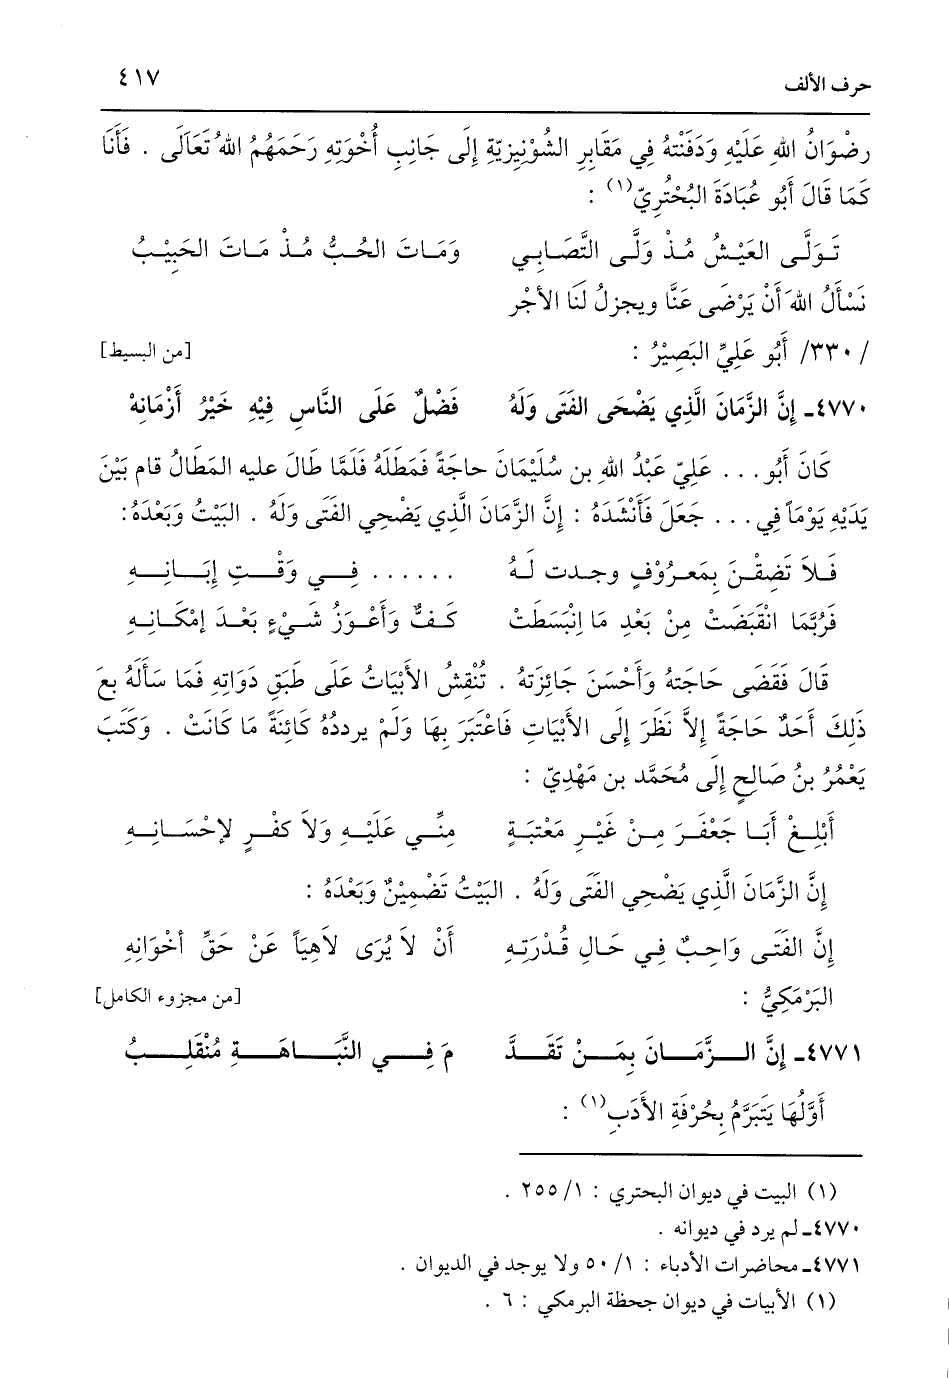 حرف الألف ٤١٧
رِضْوَانُ اللهِ عَلَيْهِ وَدَفَنْتهُ فِي مَقَابِرِ الشُوْنِيزِيّةِ إِلَى جَانِبِ أُخْوَتِهِ رَحَمَهُمُ اللهُ تَعَالَى . فَأَنَا
كَمَا قَالَ أَبُو عُبَادَةَ البُحْتُرِيّ(١) :
تَوَلَّى العَيْشُ مُذْ وَلَّى التَّصَابِي وَمَاتَ الحُبُّ مُذْ مَاتَ الحَبِيْبُ
نَسْأَلُ اللهَ أَنْ يَرْضَى عَنَّا ويجزلُ لَنَا الأجْر
/ ٣٣٠/ أَبُو عَلِيِّ البَصِيْرُ : [من البسيط]
٤٧٧٠ـ إِنَّ الزَّمَانَ الَّذِي يَضْحَى الفَتَى وَلَهُ فَضْلٌ عَلَى النَّاسِ فِيْهِ خَيْرُ أَزْمَانِهْ
كَانَ أَبُو . . . عَلِيّ عَبْدُ اللهِ بن سُلَيْمَانَ حاجَةً فَمَطَلَهُ فَلَمَّا طَالَ عليه المَطَالُ قام بَيْنَ
يَدَيْهِ يَوْمَاً فِي . . . جَعَلَ فَأَنْشَدَهُ : إِنَّ الزَّمَانَ الَّذِي يَضْحِي الفَتَى وَلَهُ . البَيْتُ وَبَعْدَهُ :
فَلاَ تَضِقْنَ بِمَعرُوْفٍ وجدت لَهُ . . . . . . فِي وَقْتِ إِبَانِهِ
فَرُبَّمَا انْقَبَضَتْ مِنْ بَعْدِ مَا انْبَسَطَتْ كَفٌّ وَأَعْوَزُ شَيْءٍ بَعْدَ إِمْكَانِهِ
قَالَ فَقَضَى حَاجَتهُ وَأَحْسَنَ جَائِزَتهُ . تُنْقِشُ الأَبْيَاتُ عَلَى طَبَقِ دَوَاتِهِ فَمَا سَأَلَهُ بِعَ
ذَلِكَ أَحَدٌ حَاجَةً إِلاَّ نَظَرَ إِلَى الأَبْيَاتِ فَاعْتَبَرَ بِهَا وَلَمْ يرددهُ كَائِنَةً مَا كَانَتْ . وَكَتَبَ
يَعْمُرُ بنُ صَالِحٍ إِلَى مُحَمَّد بن مَهْدِيّ :
أَبْلِغْ أَبَا جَعْفَرَ مِنْ غَيْرِ مَعْتبَةٍ مِنِّي عَلَيْهِ وَلاَ كفْرٍ لإحْسَانِهِ
إِنَّ الزَّمَانَ الَّذِي يَضْحِي الفَتَى وَلَهُ . البَيْتُ تَضْمِيْنٌ وَبَعْدَهُ :
إِنَّ الفَتَى وَاجِبٌ فِي حَالِ قُدْرَتِهِ أَنْ لاَ يُرَى لاَهِيَاً عَنْ حَقِّ أخْوَانِهِ
البَرْمَكِيُّ : [من مجزوء الكامل]
٤٧٧١ـ إِنَّ الزَّمَانَ بِمَنْ تَقَدَّ مَ فِي النَّبَاهَةِ مُنْقَلِبُ
أَوَّلُهَا يَتَبَرَّمُ بِحُرْفَةِ الأَدَبِ(١) :
(١) البيت في ديوان البحتري : ١/ ٢٥٥ .
٤٧٧٠ـ لم يرد في ديوانه .
٤٧٧١ـ محاضرات الأدباء : ١/ ٥٠ ولا يوجد في الديوان .
(١) الأبيات في ديوان جحظة البرمكي : ٦ .